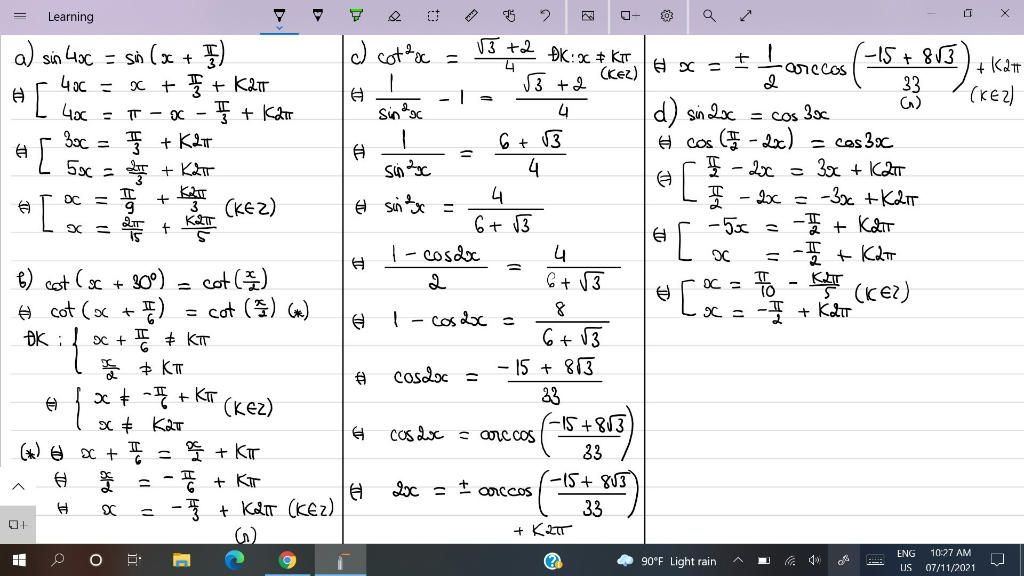 Learning
a) sin 4x = sin (x + π/3)
⇔ [ 4x = x + π/3 + K2π
4x = π - x - π/3 + K2π
⇔ [ 3x = π/3 + K2π
5x = 2π/3 + K2π
⇔ [ x = π/9 + K2π/3 (K∈Z)
x = 2π/15 + K2π/5
b) cot (x + 30°) = cot (x/2)
⇔ cot (x + π/6) = cot (x/2) (*)
ĐK : { x + π/6 ≠ Kπ
x/2 ≠ Kπ
⇔ { x ≠ -π/6 + Kπ (K∈Z)
x ≠ K2π
(*) ⇔ x + π/6 = x/2 + Kπ
⇔ x/2 = -π/6 + Kπ
⇔ x = -π/3 + K2π (K∈Z)
(n)
c) cot²x = (√3 + 2)/4 ĐK: x ≠ Kπ
(K∈Z)
⇔ 1/sin²x - 1 = (√3 + 2)/4
⇔ 1/sin²x = (6 + √3)/4
⇔ sin²x = 4/(6 + √3)
⇔ (1 - cos2x)/2 = 4/(6 + √3)
⇔ 1 - cos2x = 8/(6 + √3)
⇔ cos2x = (-15 + 8√3)/33
⇔ cos2x = arccos((-15 + 8√3)/33)
⇔ 2x = ± arccos((-15 + 8√3)/33)
+ K2π
⇔ x = ± 1/2 arccos((-15 + 8√3)/33) + K2π
(n) (K∈Z)
d) sin2x = cos3x
⇔ cos(π/2 - 2x) = cos3x
⇔ [ π/2 - 2x = 3x + K2π
π/2 - 2x = -3x + K2π
⇔ [ -5x = -π/2 + K2π
x = -π/2 + K2π
⇔ [ x = π/10 - K2π/5 (K∈Z)
x = -π/2 + K2π
90°F Light rain
ENG
US
10:27 AM
07/11/2021